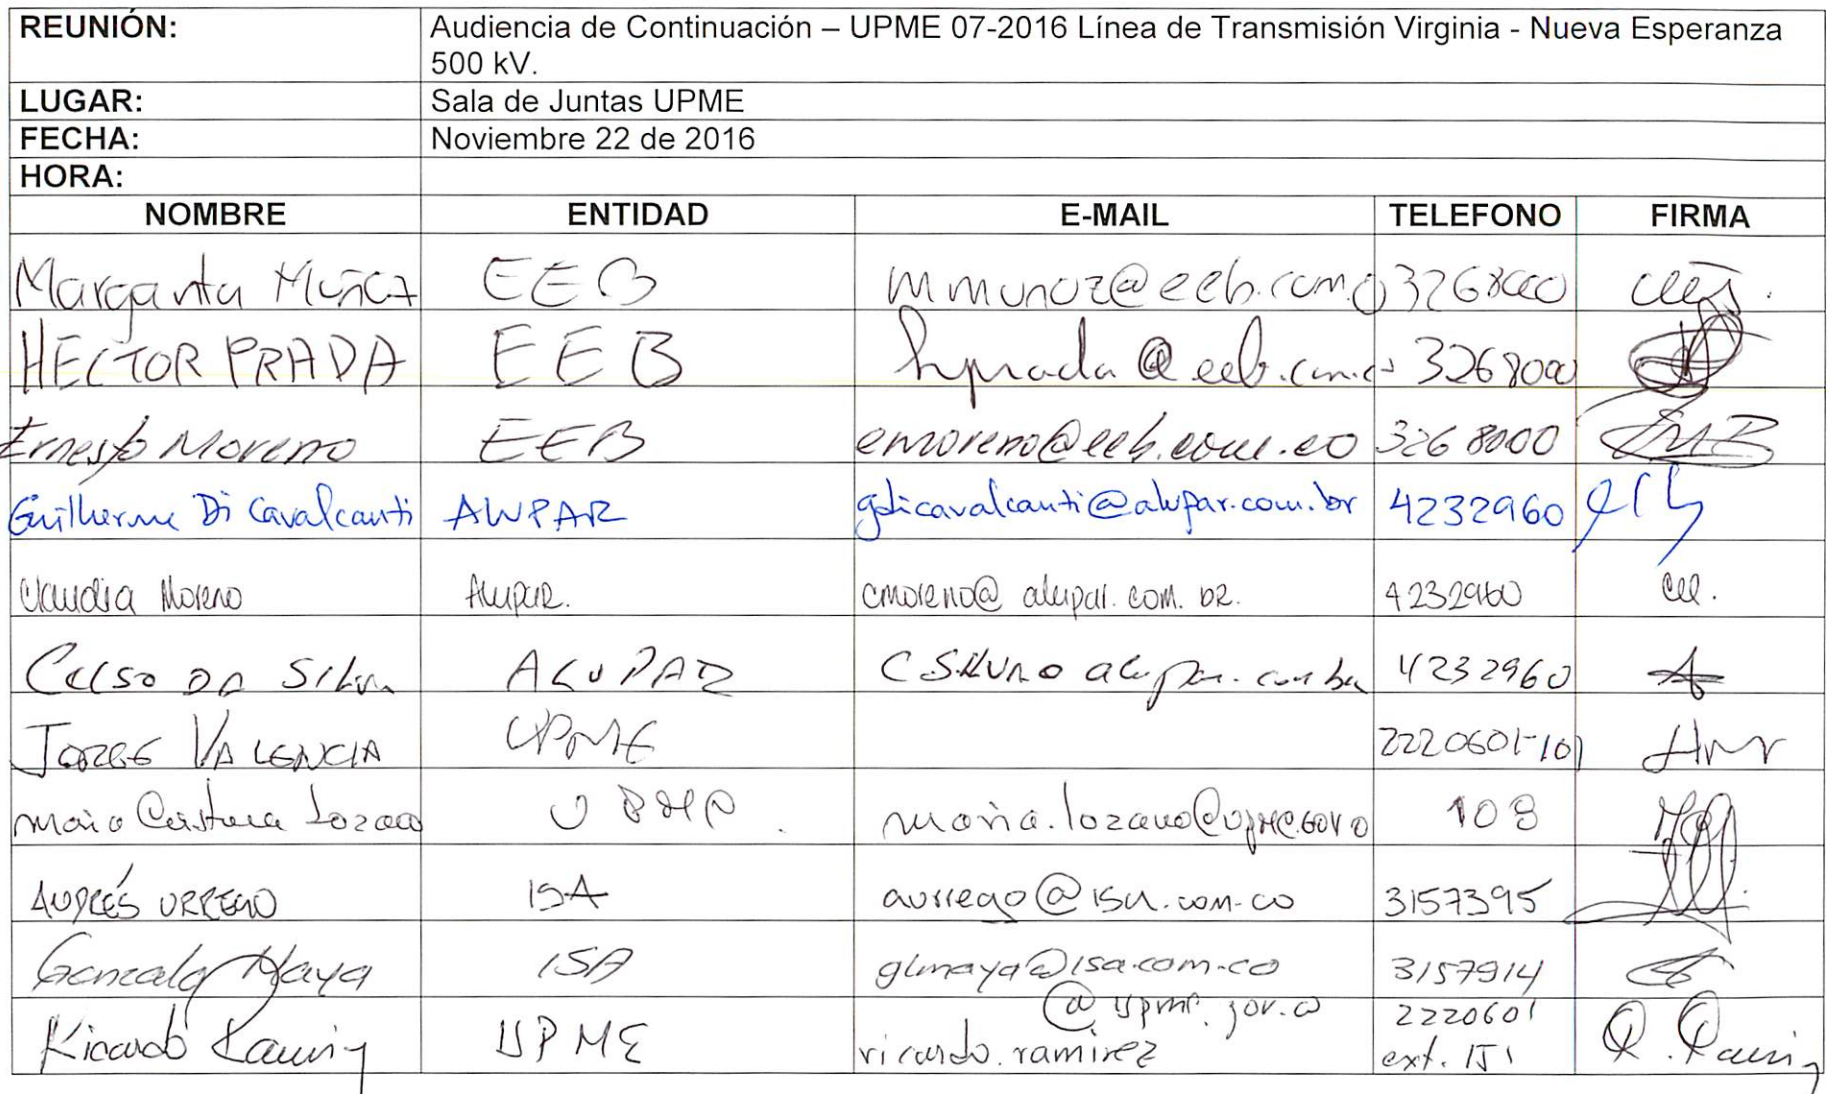 REUNIÓN: Audiencia de Continuación – UPME 07-2016 Línea de Transmisión Virginia - Nueva Esperanza
500 kV.
LUGAR: Sala de Juntas UPME
FECHA: Noviembre 22 de 2016
HORA:
NOMBRE ENTIDAD E-MAIL TELEFONO FIRMA
Margarita Muñoz EEB mmunoz@eeb.com.co 3268000
HECTOR PRADA EEB hprada@eeb.com.co 3268000
Ernesto Moreno EEB emoreno@eeb.com.co 3268000 EMB
Guilherme Di Cavalcanti ALUPAR gdicavalcanti@alupar.com.br 4232960
Claudia Moreno Alupar. cmoreno@alupar.com.br. 4232960
Celso DA Silva ALUPAR 4232960
JORGE VALENCIA UPME 2220601-101
Maria Cristina Lozano UPME. maria.lozano@upme.gov.co 108
ANDRÉS URREGO ISA aurrego@isa.com.co 3157395
Gonzalo Maya ISA glmaya@isa.com.co 3157914
Ricardo Ramirez UPME ricardo.ramirez @upme.gov.co 2220601
ext. 151 R. Ramirez